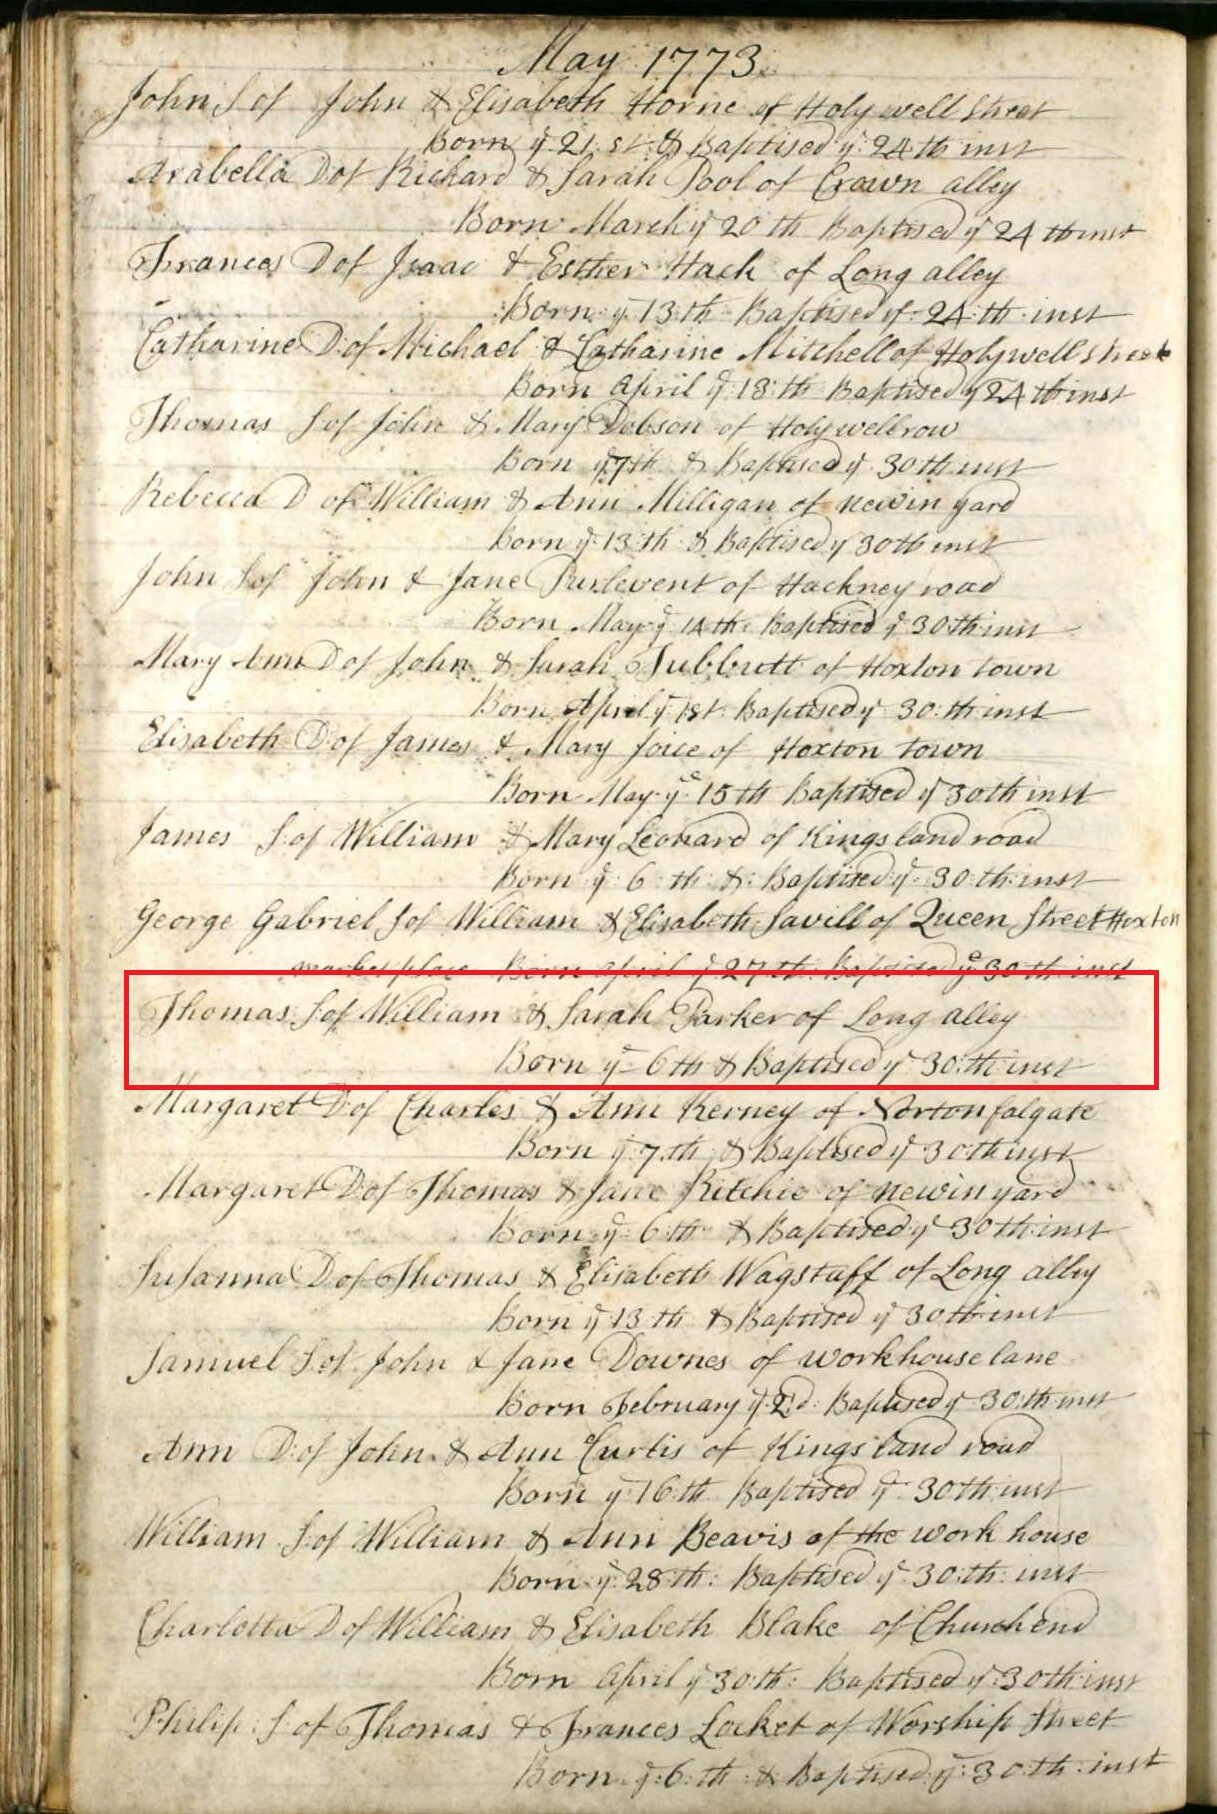 May 1773
John S of John & Elisabeth Horne of Holywell Street
Born ye 21.st & Baptised ye 24th inst
Arabella D of Richard & Sarah Pool of Crown alley
Born March ye 20th Baptised ye 24th inst
Frances D of Isaac & Esther Hack of Long alley
Born ye 13th Baptised ye 24th inst
Catharine D of Michael & Catharine Mitchell of Holywell street
Born april ye 18th Baptised ye 24th inst
Thomas S of John & Mary Dobson of Holywell row
Born ye 7th & Baptised ye 30th inst
Rebecca D of William & Ann Milligan of newin yard
Born ye 13th & Baptised ye 30th inst
John S of John & Jane of Hackney road
Born May ye 14th Baptised ye 30th inst
Mary Ann D of John & Sarah Tubbutt of Hoxton town
Born April ye 1st Baptised ye 30th inst
Elisabeth D of James & Mary Joice of Hoxton town
Born May ye 15th Baptised ye 30th inst
James S of William & Mary Leonard of Kingsland road
Born ye 6th & Baptised ye 30th inst
George Gabriel S of William & Elisabeth Savill of Queen Street Hoxton
market place Born april ye 27th Baptised ye 30th inst
Thomas S of William & Sarah Parker of Long alley
Born ye 6th & Baptised ye 30th inst
Margaret D of Charles & Ann Kerney of Norton falgate
Born ye 7th & Baptised ye 30th inst
Margaret D of Thomas & Jane Ritchie of newin yard
Born ye 6th & Baptised ye 30th inst
Susanna D of Thomas & Elisabeth Wagstaff of Long alley
Born ye 13th & Baptised ye 30th inst
Samuel S of John & Jane Downes of workhouse lane
Born February ye 2d Baptised ye 30th inst
Ann D of John & Ann Curtis of Kingsland road
Born ye 16th Baptised ye 30th inst
William S of William & Ann Beavis of the work house
Born ye 28th: Baptised ye 30th inst
Charlotta D of William & Elisabeth Blake of Church end
Born april ye 30th: Baptised ye 30th inst
Philip S of Thomas & Frances Locket of Worship Street
Born ye 6th & Baptised ye 30th inst